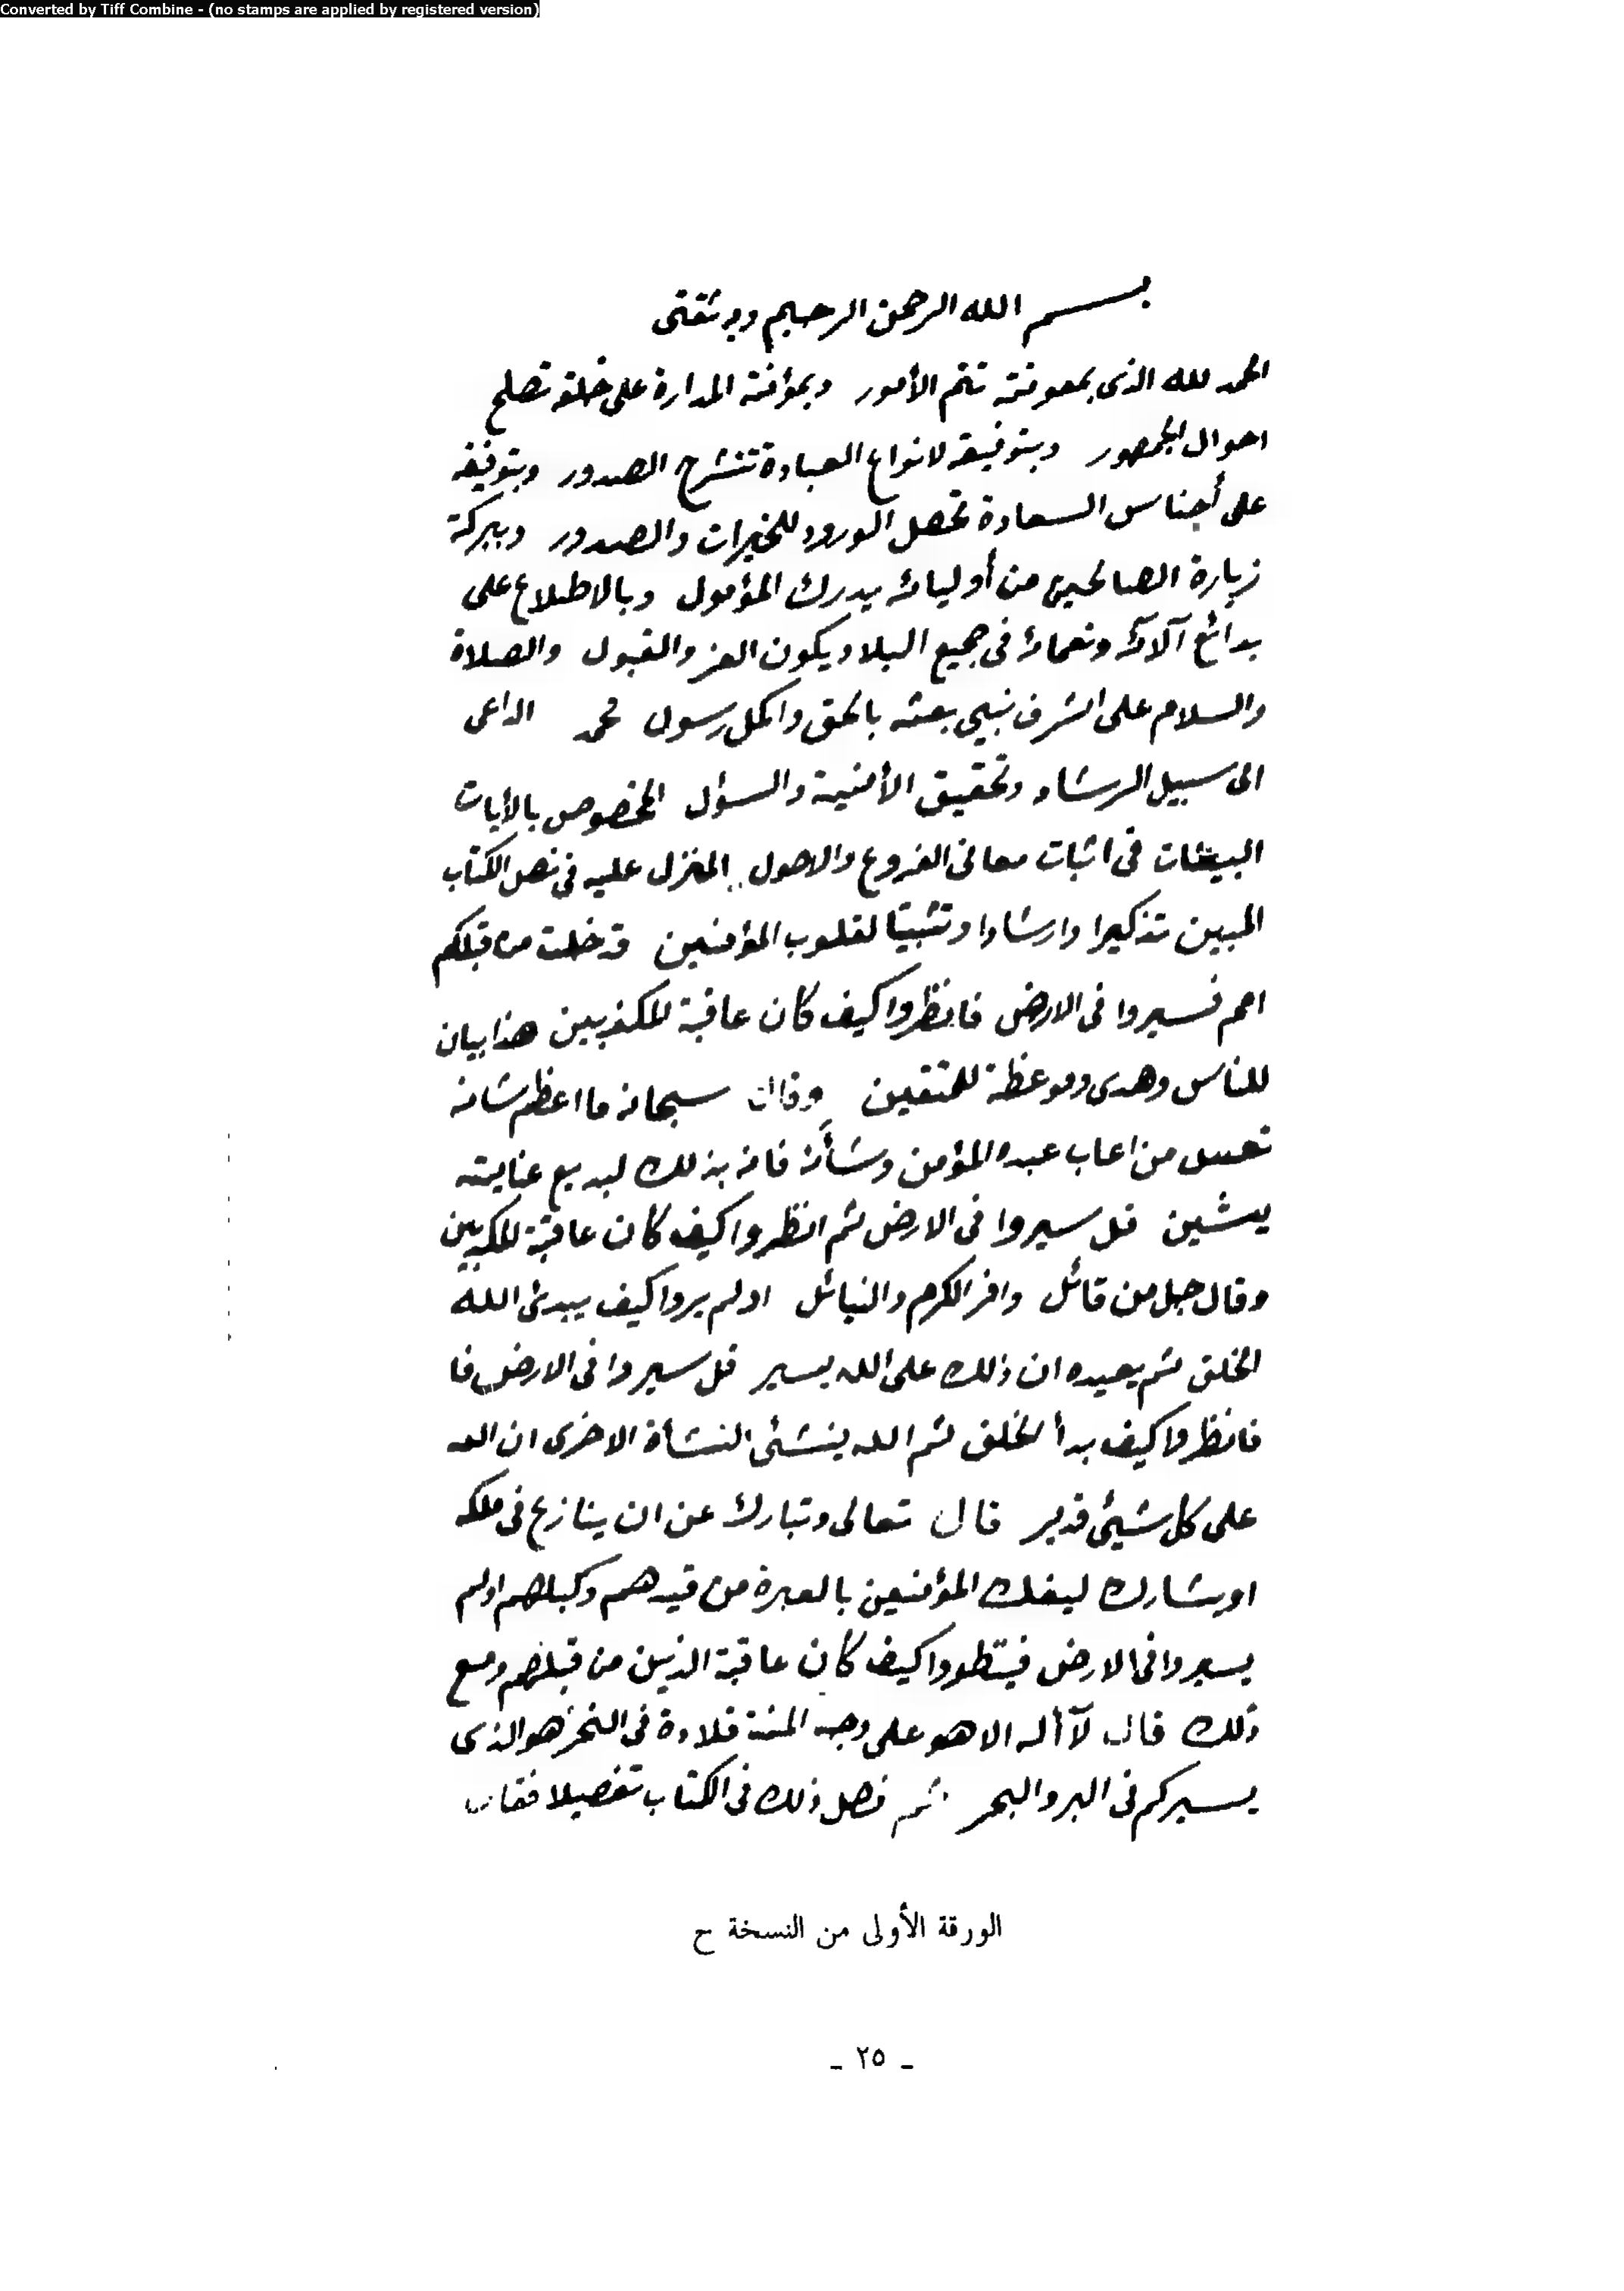 Converted by Tiff Combine - (no stamps are applied by registered version)
بسم الله الرحمن الرحيم وبه ثقتى
الحمد لله الذى بمعونته تتم الأمور وبمؤنته المدارة على خلقه تصلح
احوال الجمهور وبتوفيقه لانواع العبادة تنشرح الصدور وبتوفيقه
على أجناس السعادة تحصل الورود للخيرات والصدور وببركة
زيارة الصالحين من أوليائه يدرك المؤمول وبالاطلاع على
بدائع آلائه ونعمائه فى جميع البلاد يكون العز والقبول والصلاة
والسلام على اشرف نبي بعثه بالحق واكمل رسول محمد الداعى
الى سبيل الرشاد وتحقيق الأمنية والسؤل المخصوص بالأيات
البينات فى اثبات معانى الفروع والاصول المنزل عليه فى نص الكتاب
المبين تذكيرا وارشادا وتثبيتا لقلوب المؤمنين قد خلت من قبلكم
امم فسيروا فى الارض فانظروا كيف كان عاقبة المكذبين هذا بيان
للناس وهدى وموعظة للمتقين وقال سبحانه ما اعظم شانه
من اعاب عبده المؤمن وشأنه فانه بذلك لبديع عنايته
يشين قل سيروا فى الارض ثم انظروا كيف كان عاقبة المكذبين
وقال جل من قائل وافر الكرم والنبائل اولم يروا كيف يبدئ الله
الخلق ثم يعيده ان ذلك على الله يسير قل سيروا فى الارض فا
فانظروا كيف بدأ الخلق ثم الله ينشئ النشأة الاخرى ان الله
على كل شيئ قدير قال تعالى وتبارك عن ان ينازع فى ملكه
او يشارك ليفك المؤمنين بالعبرة من قيدهم وكبلهم اولم
يسيروا فى الارض فينظروا كيف كان عاقبة الذين من قبلهم ومع
ذلك قال لا أله الا هو على وجه المنة قلادة فى النحر هو الذى
يسيركم فى البر والبحر ثم فصل ذلك فى الكتاب تفصيلا فقال
الورقة الأولى من النسخة ح
- ٢٥ -